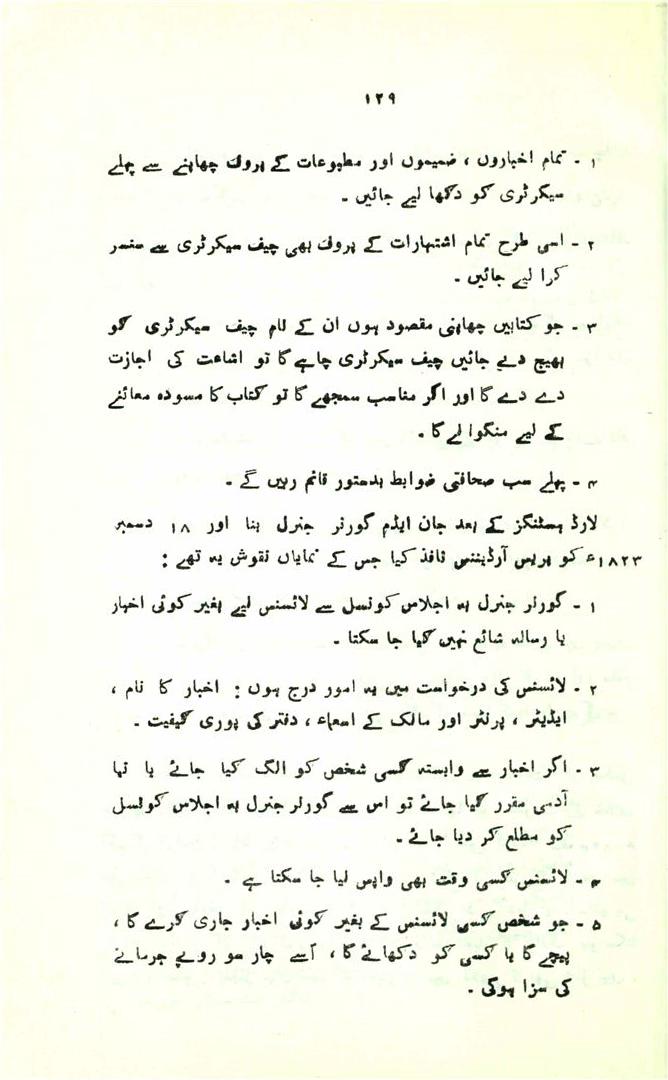 ۱۲۹
۱ - تمام اخباروں ، ضمیموں اور مطبوعات کے پروف چھاپنے سے پہلے
سیکرٹری کو دکھا لیے جائیں ۔
۲ - اسی طرح تمام اشتہارات کے پروف بھی چیف سیکرٹری سے سنسر
کرا لیے جائیں ۔
۳ - جو کتابیں چھاپنی مقصود ہوں ان کے نام چیف سیکرٹری کو
بھیج دیے جائیں چیف سیکرٹری چاہے گا تو اشاعت کی اجازت
دے دے گا اور اگر مناسب سمجھے گا تو کتاب کا مسودہ معائنے
کے لیے منگوا لے گا ۔
۴ - پہلے سب صحافتی ضوابط بدستور قائم رہیں گے ۔
لارڈ ہسٹنگز کے بعد جان ایڈم گورنر جنرل بنا اور ۱۸ دسمبر
۱۸۲۳ء کو پریس آرڈیننس نافذ کیا جس کے نمایاں نقوش یہ تھے :
۱ - گورنر جنرل بہ اجلاس کونسل سے لائسنس لیے بغیر کوئی اخبار
یا رسالہ شائع نہیں کیا جا سکتا ۔
۲ - لائسنس کی درخواست میں یہ امور درج ہوں : اخبار کا نام ،
ایڈیٹر ، پرنٹر اور مالک کے اسماء ، دفتر کی پوری کیفیت ۔
۳ - اگر اخبار سے وابستہ کسی شخص کو الگ کیا جائے یا نیا
آدمی مقرر کیا جائے تو اس سے گورنر جنرل بہ اجلاس کونسل
کو مطلع کر دیا جائے ۔
۴ - لائسنس کسی وقت بھی واپس لیا جا سکتا ہے ۔
۵ - جو شخص کسی لائسنس کے بغیر کوئی اخبار جاری کرے گا ،
بیچے گا یا کسی کو دکھائے گا ، اسے چار سو روپے جرمانے
کی سزا ہوگی ۔